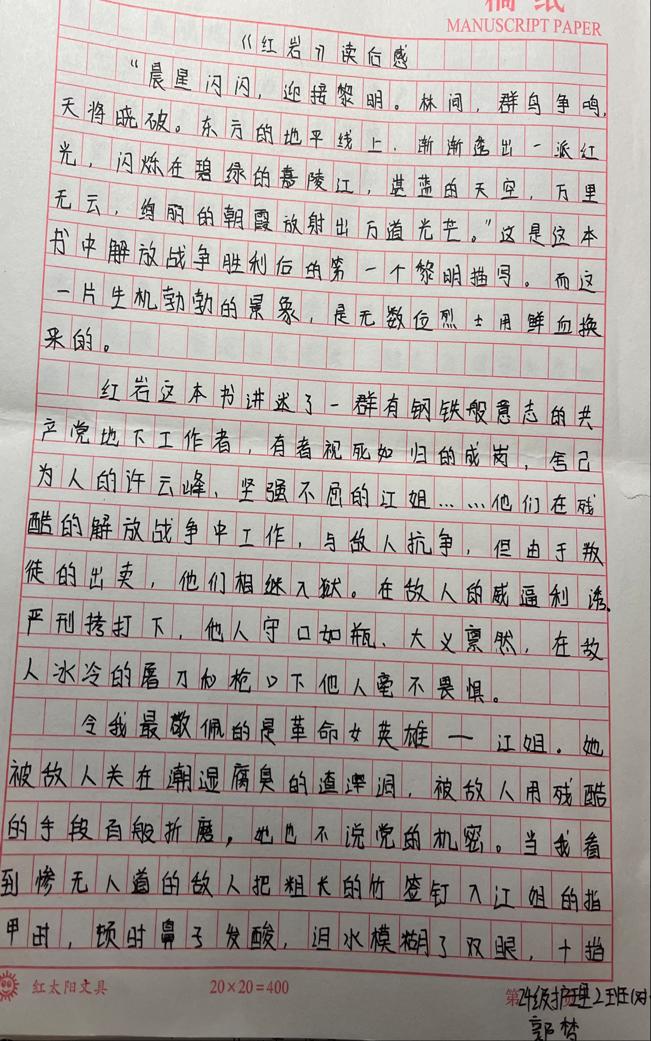 稿纸
MANUSCRIPT PAPER
《红岩》读后感
“晨星闪闪，迎接黎明。林间，群鸟争鸣，
天将晓破。东方的地平线上，渐渐透出一派红
光，闪烁在碧绿的嘉陵江，湛蓝的天空，万里
无云，绚丽的朝霞放射出万道光芒。”这是这本
书中解放战争胜利后的第一个黎明描写。而这
一片生机勃勃的景象，是无数位烈士用鲜血换
来的。
红岩这本书讲述了一群有钢铁般意志的共
产党地下工作者，有者视死如归的成岗，舍己
为人的许云峰、坚强不屈的江姐……他们在残
酷的解放战争中工作，与敌人抗争，但由于叛
徒的出卖，他们相继入狱。在敌人的威逼利诱、
严刑拷打下，他人守口如瓶、大义禀然，在敌
人冰冷的屠刀和枪口下他人毫不畏惧。
令我最敬佩的是革命女英雄—江姐。她
被敌人关在潮湿腐臭的渣滓洞，被敌人用残酷
的手段百般折磨，她也不说党的机密。当我看
到惨无人道的敌人把粗长的竹签钉入江姐的指
甲时，顿时鼻子发酸，泪水模糊了双眼，十指
红太阳文具
20×20=400
第
24级护理2班(对
郭梦